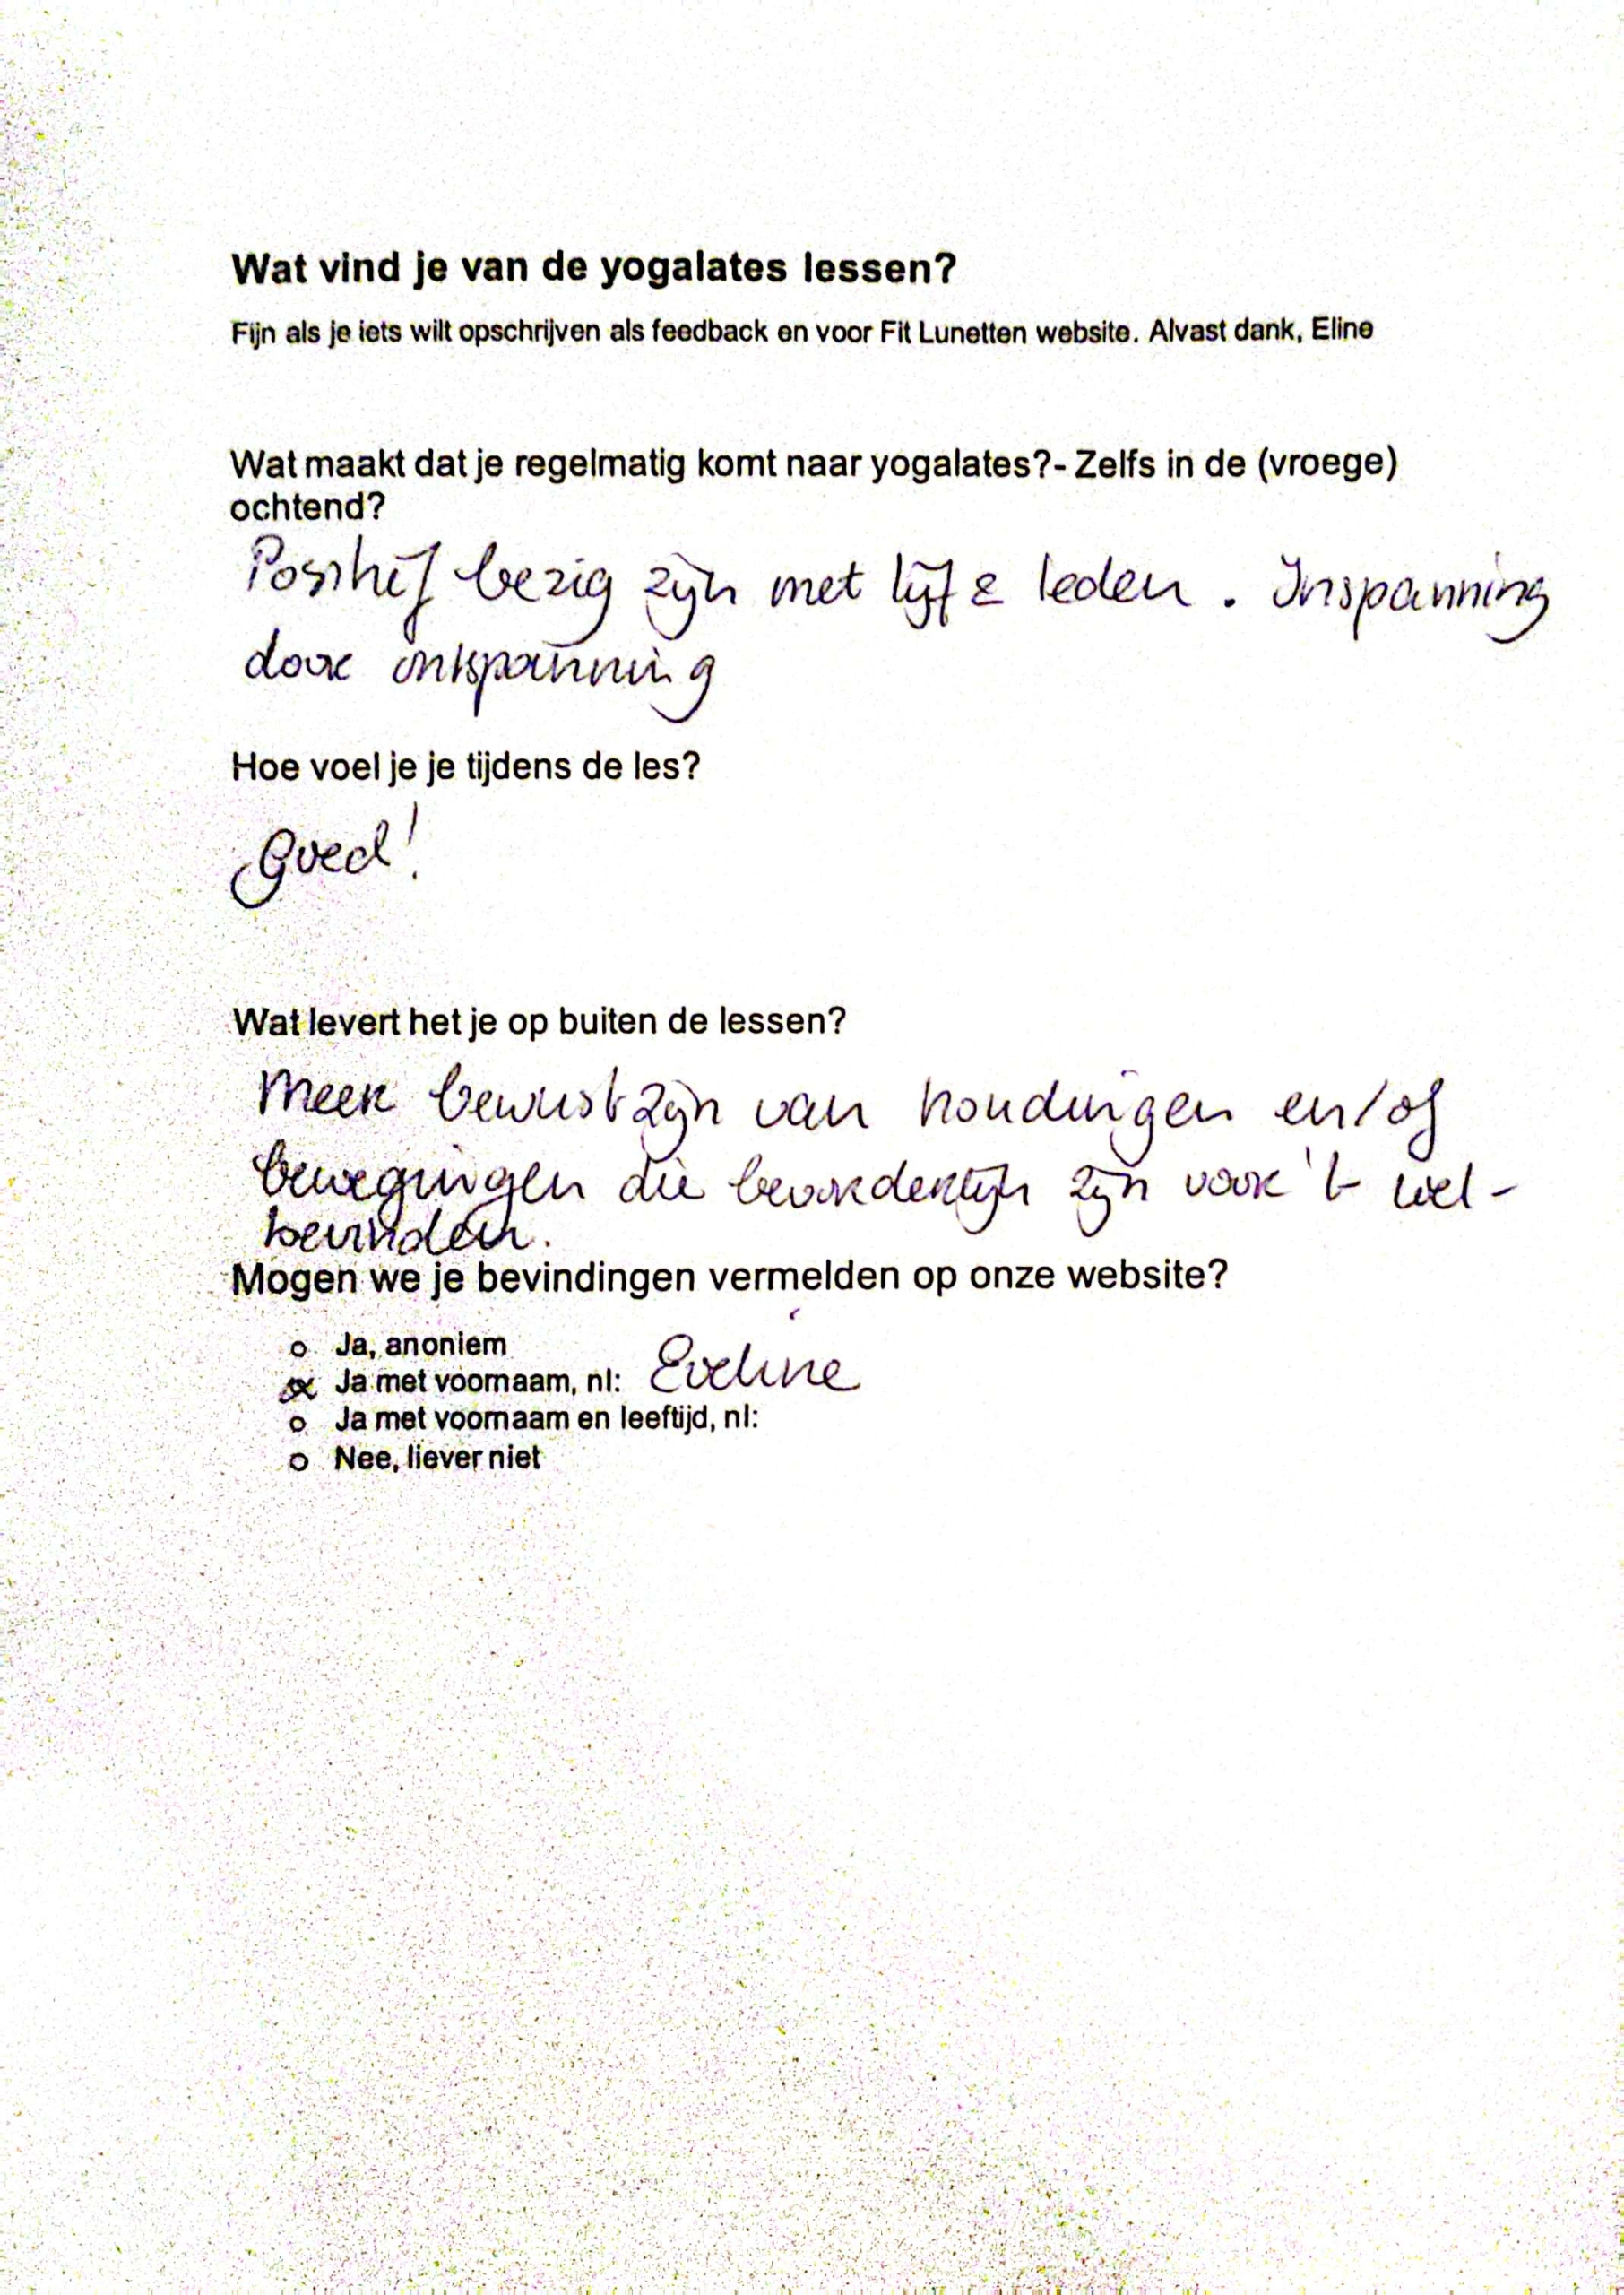 Wat vind je van de yogalates lessen?
Fijn als je iets wilt opschrijven als feedback en voor Fit Lunetten website. Alvast dank, Eline
Wat maakt dat je regelmatig komt naar yogalates?- Zelfs in de (vroege)
ochtend?
Positief bezig zijn met lijf & leden. Inspanning
door ontspanning
Hoe voel je je tijdens de les?
Goed!
Wat levert het je op buiten de lessen?
Meer bewust zijn van houdingen en/of
bewegingen die bevorderlijk zijn voor 't wel-
bevinden.
Mogen we je bevindingen vermelden op onze website?
o Ja, anoniem
x Ja met voornaam, nl: Eveline
o Ja met voornaam en leeftijd, nl:
o Nee, liever niet